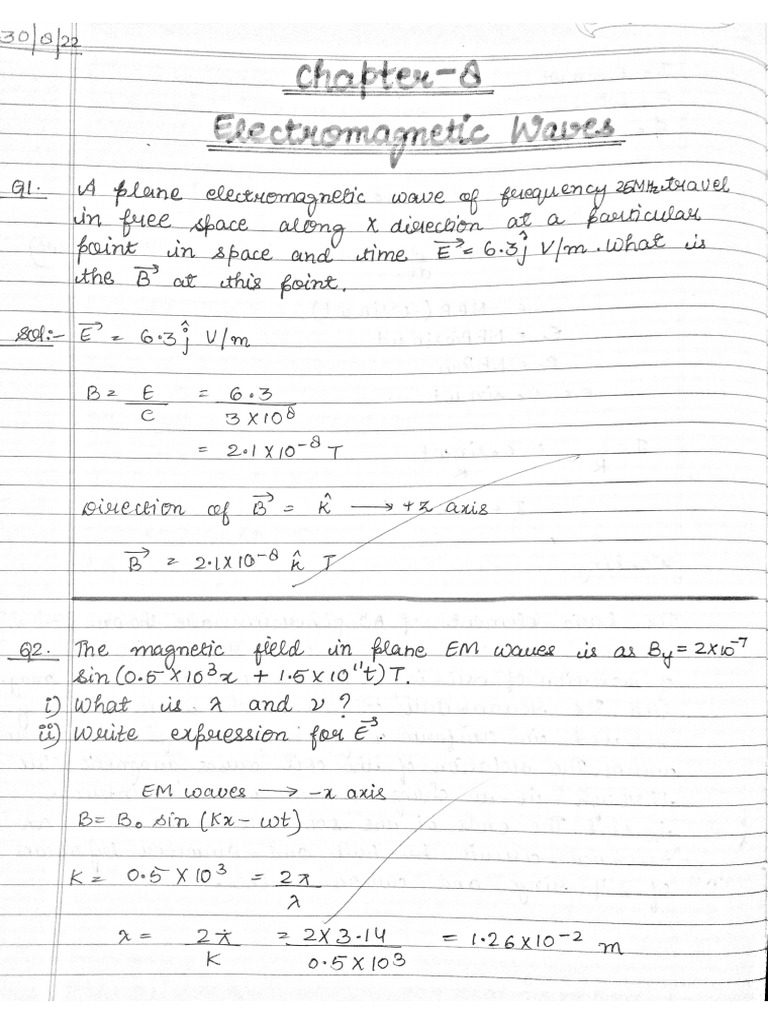 30/8/22
Chapter-8
Electromagnetic Waves
Q1. A plane electromagnetic wave of frequency 25MHz travel
in free space along X direction at a particular
point in space and time E⃗ = 6.3ĵ V/m. What is
the B⃗ at this point.
Sol:- E⃗ = 6.3ĵ V/m
B = E/C = 6.3/3×10⁸
= 2.1×10⁻⁸ T
Direction of B⃗ = k̂ → +z axis
B⃗ = 2.1×10⁻⁸ k̂ T
Q2. The magnetic field in plane EM waves is as By = 2×10⁻⁷
sin(0.5×10³x + 1.5×10¹¹t)T.
i) What is λ and ν?
ii) Write expression for E⃗.
EM waves → -x axis
B = B₀ sin (Kx - ωt)
K = 0.5×10³ = 2π/λ
λ = 2π/K = 2×3.14/0.5×10³ = 1.26×10⁻² m